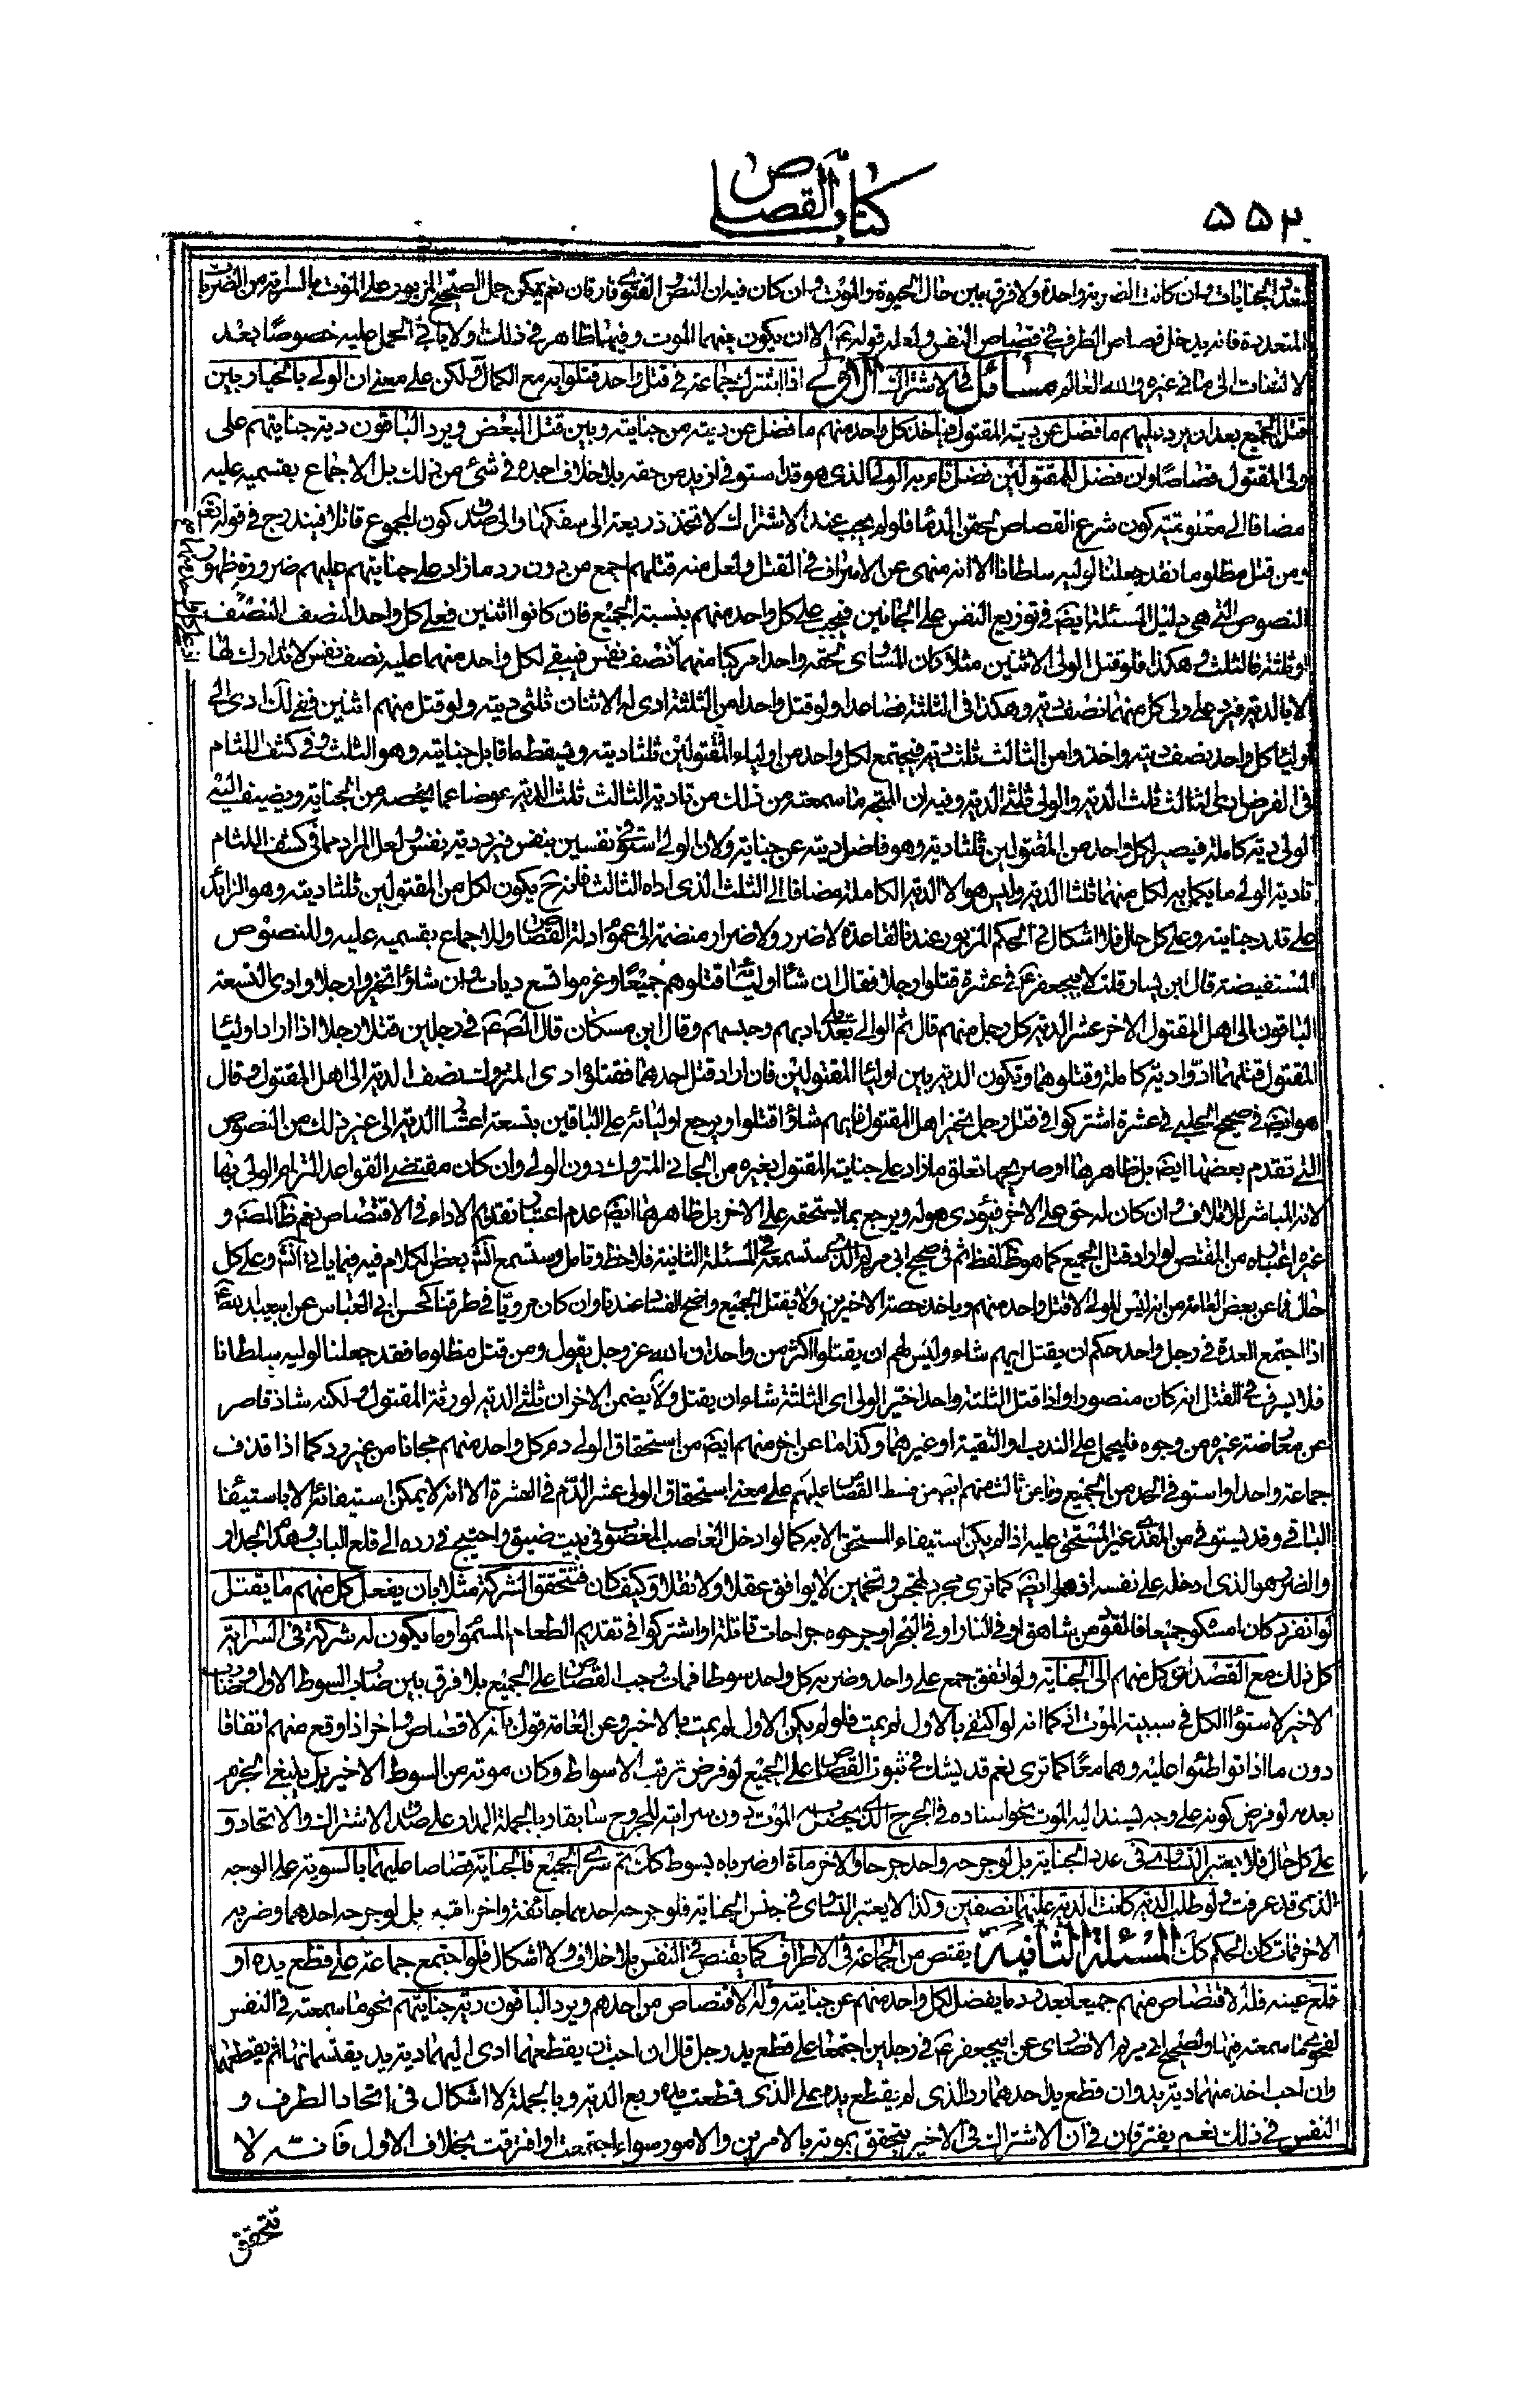 ۵۵۲
كتاب القصاص
لتعدد الجنايات وان كانت الضربة واحدة ولا فرق بين حال الحيوة والموت وان كان فيه ان النص والفتوى فارقان نعم يمكن حمل الصحيح المزبور على الموت بالسراية من الضربات
المتعددة فانه يدخل قصاص الطرف في قصاص النفس ولعله قوله الا ان يكون بينهما الموت وفيها ظاهر في ذلك ولا ياباه الحمل عليه خصوصا بعد
الالتفات الى ما في غيره والله العالم مسائل في الاشتراك الاولى اذا اشترك جماعة في قتل واحد قتلوا به مع الكمال ولكن على معنى ان الولي بالخيار بين
قتل الجميع بعد ان يرد عليهم ما فضل عن دية المقتول فياخذ كل واحد منهم ما فضل عن ديته من جنايته وبين قتل البعض ويرد الباقون دية جنايتهم على
ولي المقتول قصاصا وان فضل للمقتولين فضل قام به الولي الذي هو قد استوفى ازيد من حقه بلا خلاف اجده في شئ من ذلك بل الاجماع بقسميه عليه
مضافا الى معلومية كون شرع القصاص لحقن الدماء فلو لم يجب عند الاشتراك لاتخذ ذريعة الى سفكها والى صدق كون المجموع قاتلا فيندرج في قوله تعالى
ومن قتل مظلوما فقد جعلنا لوليه سلطانا الا انه منهى عن الاسراف في القتل ولعل منه قتلهم اجمع من دون رد ما زاد على جنايتهم عليهم ضرورة ظهور
النصوص التي هي دليل المسئلة ايضا في توزيع النفس على الجانين فيجب على كل واحد منهم بنسبة الجميع فان كانوا اثنين فعلى كل واحد النصف
او ثلثة فالثلث وهكذا فلو قتل الولي الاثنين مثلا كان المساوي لحقه واحدا مركبا منهما نصف نفس فيبقى لكل واحد منهما عليه نصف نفس لا تدارك لها
الا بالدية فيرد على ولي كل منهما نصف ديته وهكذا في الثلثة فصاعدا ولو قتل واحدا من الثلثة ادى له الاثنان ثلثى ديته ولو قتل منهم اثنين ففي لك ادى الى
اوليا كل واحد نصف دية واخذوا من الثالث ثلث دية فيجتمع لكل واحد من اولياء المقتولين ثلثا ديته ويسقط ما قابل جنايته وهو الثلث وفي كشف اللثام
في الفرض ادى الثالث ثلث الدية والولي ثلثي الدية وفيه ان المتجه ما سمعته من ذلك من تادية الثالث ثلث الدية عوضا عما يخصه من الجناية ويضيف اليه
الولي دية كاملة فيصير لكل واحد من المقتولين ثلثا دية وهو فاضل ديته عن جنايته ولان الولي استوفى نفسين بنفس فيرد دية نفس ولعل المراد مما في كشف اللثام
تادية الولي ما يكمل به لكل منهما ثلثا الدية وليس هو الا الدية الكاملة مضافا الى الثلث الذي اداه الثالث فانه ح يكون لكل من المقتولين ثلثا دية وهو الزائد
على قدر جنايته وعلى كل حال فلا اشكال في الحكم المزبور عندنا لقاعدة لا ضرر ولا ضرار منضمة الى عموم ادلة القصاص وللاجماع بقسميه عليه وللنصوص
المستفيضة قال ابن يسار قلت لابيجعفر ع في عشرة قتلوا رجلا فقال ان شاء اولياؤه قتلوهم جميعا وغرموا تسع ديات وان شاؤا تخيروا رجلا وادى التسعة
الباقون الى اهل المقتول الاخر عشر الدية كل رجل منهم قال ثم الوالي بعد يلي ادبهم وحبسهم وقال ابن مسكان قال الص ع في رجلين قتلا رجلا اذا اراد اوليا
المقتول قتلهما ادوا دية كاملة وقتلوهما وتكون الدية بين اوليا المقتولين فان اراد قتل احدهما فقتلوه ادى المتروك نصف الدية الى اهل المقتول وقال
هو ايضا في صحيح الحلبي في عشرة اشتركوا في قتل رجل يخير اهل المقتول فايهم شاؤا قتلوا ويرجع اوليائه على الباقين بتسعة اعشار الدية الى غير ذلك من النصوص
التي تقدم بعضها ايضا بل ظاهرها او صريحها تعلق ما زاد على جناية المقتول بغيره من الجاني المتروك دون الولي وان كان مقتضى القواعد التزام الولي بها
لانه المباشر للاتلاف وان كان له حق على الاخر فيؤدى هو له ويرجع بما يستحقه على الاخر بل ظاهرهما ايضا عدم اعتبار تقديم الاداء في الاقتصاص نعم ظ المصنف و
غيره اعتباره من المقتص لو اراد قتل الجميع كما هو ظ لفظ ثم في صحيح ابي مريم الذي ستسمعه في المسئلة الثانية فلاحظ وتامل وستسمع انش بعض الكلام فيه فيما ياتي انش وعلى كل
حال فما عن بعض العامة من انه ليس للولي الا قتل واحد منهم وياخذ حصة الاخرين ولا يقتل الجميع واضح الفساد عندنا وان كان مرويا في طرقنا كحسن ابي العباس عن ابيعبد الله ع
اذا اجتمع العدة في رجل واحد حكم ان يقتل ايهم شاء وليس لهم ان يقتلوا اكثر من واحد ان الله عز وجل يقول ومن قتل مظلوما فقد جعلنا لوليه سلطانا
فلا يسرف في القتل انه كان منصورا واذا قتل الثلثة واحدا خير الولي اى الثلثة شاء ان يقتل ولا يضمن الاخران ثلثي الدية لورثة المقتول ولكنه شاذ قاصر
عن معارضة غيره من وجوه فليحمل على الندب او التقية او غيرهما وكذا ما عن اخر منهم ايضا من استحقاق الولي دم كل واحد منهم مجانا من غير رد كما اذا قذف
جماعة واحدا واستوفى الحد من الجميع وما عن ثالث منهم ايضا من قسط القصاص عليهم على معنى استحقاق الولي عشر الدم في العشرة الا انه لا يمكن استيفائه الا باستيفاء
الباقي وقد يستوفى من المتعدى غير المستحق عليه اذا لم يكن استيفاء المستحق الا به كما لو ادخل الغاصب المغصوب في بيت ضيق واحتيج في رده الى قلع الباب وهدم الجدار
والضرر هو الذي ادخله على نفسه اذ هو ايضا كما ترى مجرد تهجس وتخمين لا يوافق عقلا ولا نقلا وكيف كان فتتحقق الشركة مثلا بان يفعل كل منهم ما يقتل
لو انفرد كان امسكوه جميعا فالقوه من شاهق او في النار او في البحر او جرحوه جراحات قاتلة او اشتركوا في تقديم الطعام المسموم او ما يكون له شركة في السراية
كل ذلك مع القصد من كل منهم الى الجناية ولو اتفق جمع على واحد وضربه كل واحد سوطا فمات وجب القصاص على الجميع بلا فرق بين ضارب السوط الاول وضارب
الاخير لاستواء الكل في سببية الموت اذ كما انه لو اكتفى بالاول لم يمت فلو لم يكن الاول لم يمت بالاخير وعن العامة قول بانه لا قصاص واخر اذا وقع منهم اتفاقا
دون ما اذا تواطئوا عليه وهما معا كما ترى نعم قد يشك في ثبوت القصاص على الجميع لو فرض ترتب الاسواط وكان موته من السوط الاخير بل ينبغي الجزم
بعدمه لو فرض كونه على وجه يسند اليه الموت نحو اسناده في الجرح الذي يحصل الموت دون سراية للجروح سابقا وبالجملة المدار على صدق الاشتراك والاتحاد و
على كل حال فلا يعتبر التساوى في عدد الجناية بل لو جرحه واحد جرحا والاخر ماة او ضرباه بسوط كك ثم سرى الجميع فالجناية قصاصا عليهما بالسوية على الوجه
الذي قد عرفت ولو طلب الدية كانت الدية عليهما نصفين وكذا لا يعتبر التساوى في جنس الجناية فلو جرحه احدهما جائفة واخر امة بل لو جرحه احدهما وضربه
الاخر فمات كان الحكم كك المسئلة الثانية يقتص من الجماعة في الاطراف كما يقتص في النفس بلا خلاف ولا اشكال فلو اجتمع جماعة على قطع يده او
قلع عينه فله الاقتصاص منهم جميعا بعد رد ما يفضل لكل واحد منهم عن جنايته وله الاقتصاص من احدهم ويرد الباقون دية جنايتهم نحو ما سمعته في النفس
لفحوى ما سمعته فيها ولصحيح ابي مريم الانصاري عن ابيجعفر ع في رجلين اجتمعا على قطع يد رجل قال ان احب ان يقطعهما ادى اليهما دية يد يقتسمانها ثم يقطعهما
وان احب اخذ منهما دية يد وان قطع يد احدهما رد الذي لم يقطع يده على الذي قطعت يده ربع الدية وبالجملة لا اشكال في اتحاد الطرف و
النفس في ذلك نعم يفترقان في ان الاشتراك في الاخير يتحقق بموته بالامرين والامور سواء اجتمعت او افترقت بخلاف الاول فانه لا
تتحقق